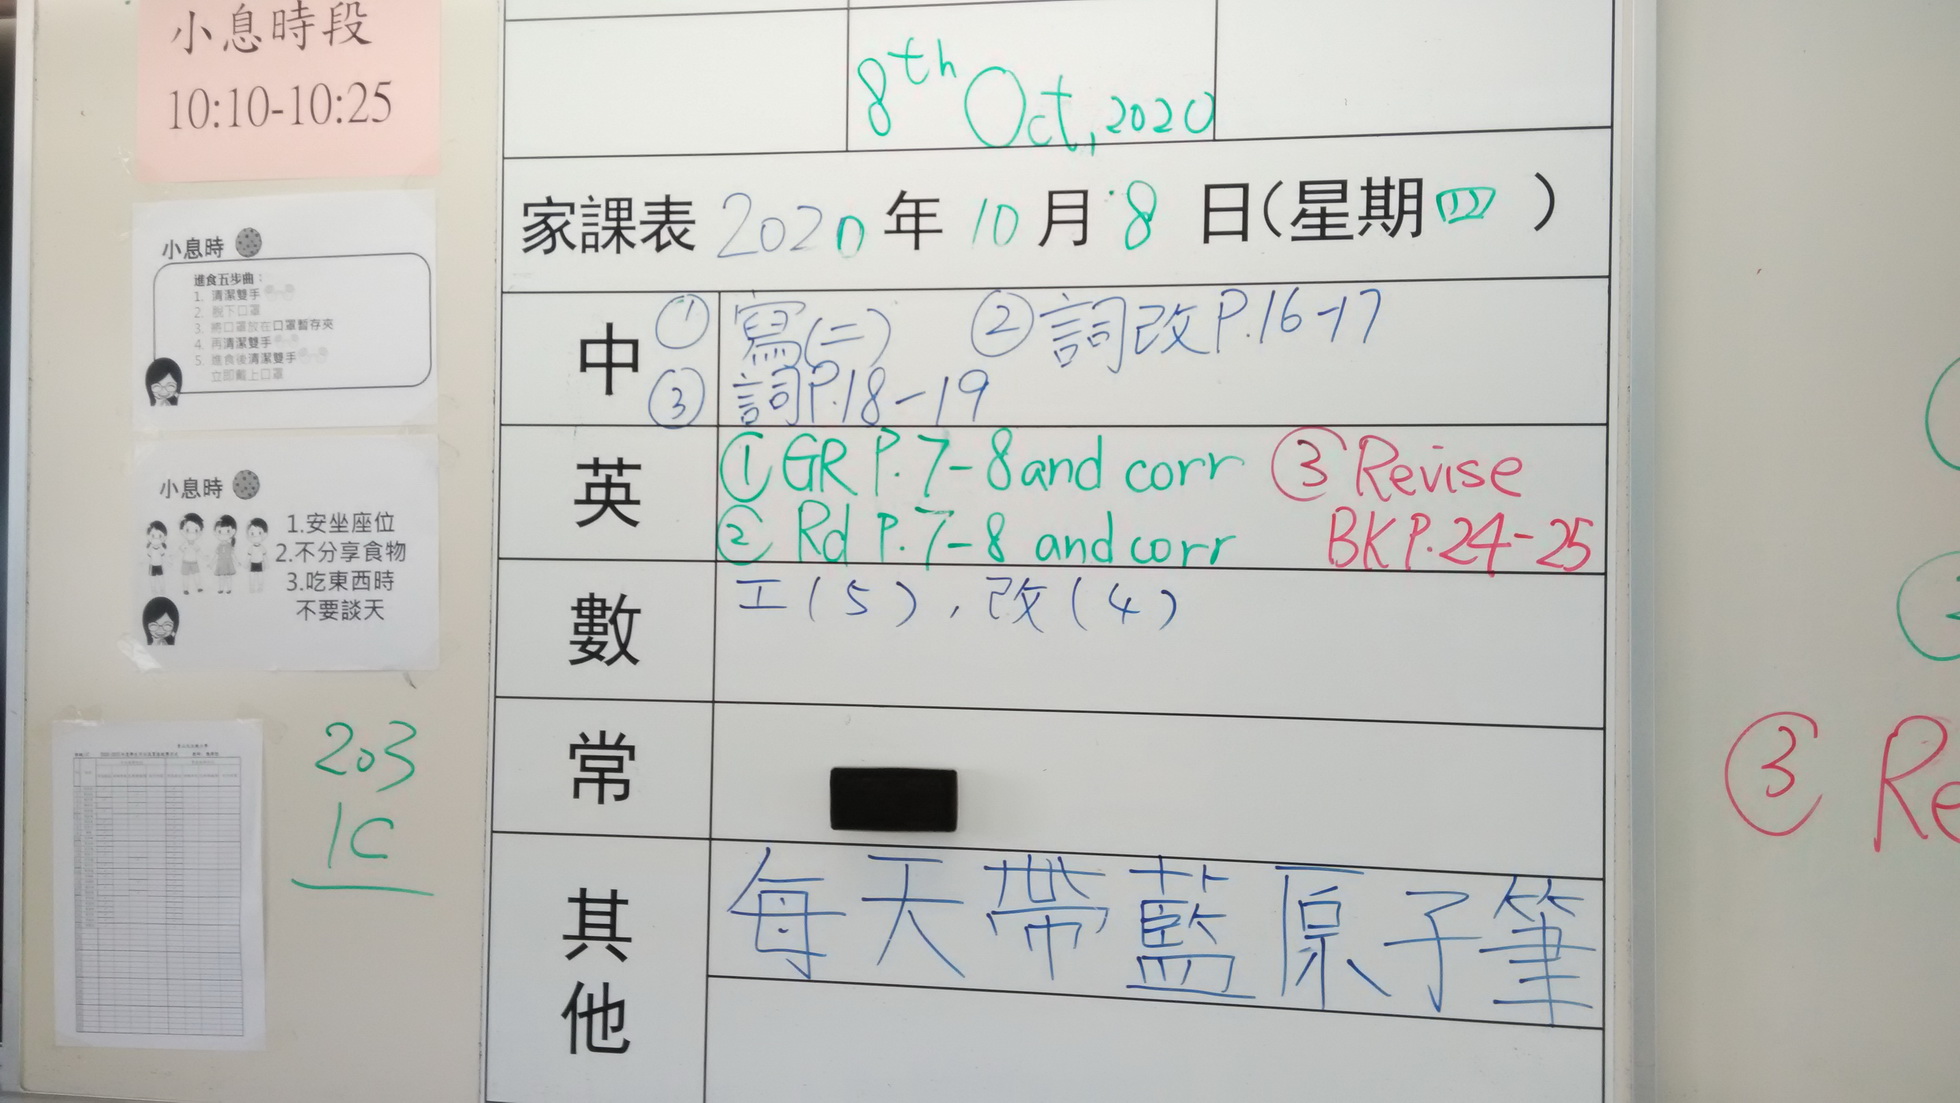 小息時段
10:10-10:25
小息時
進食五步曲：
1. 清潔雙手
2. 脫下口罩
3. 將口罩放在口罩暫存夾
4. 再清潔雙手
5. 進食後清潔雙手
立即戴上口罩
小息時
1.安坐座位
2.不分享食物
3.吃東西時
不要談天
203
1C
8th Oct, 2020
家課表 2020 年 10 月 8 日(星期四)
中 ① 寫(二) ② 詞改P.16-17
③ 詞P.18-19
英 ① GR P.7-8 and corr ③ Revise
② Rd P.7-8 and corr BK P.24-25
數 工(5), 改(4)
常
其他 每天帶藍原子筆
③ Re